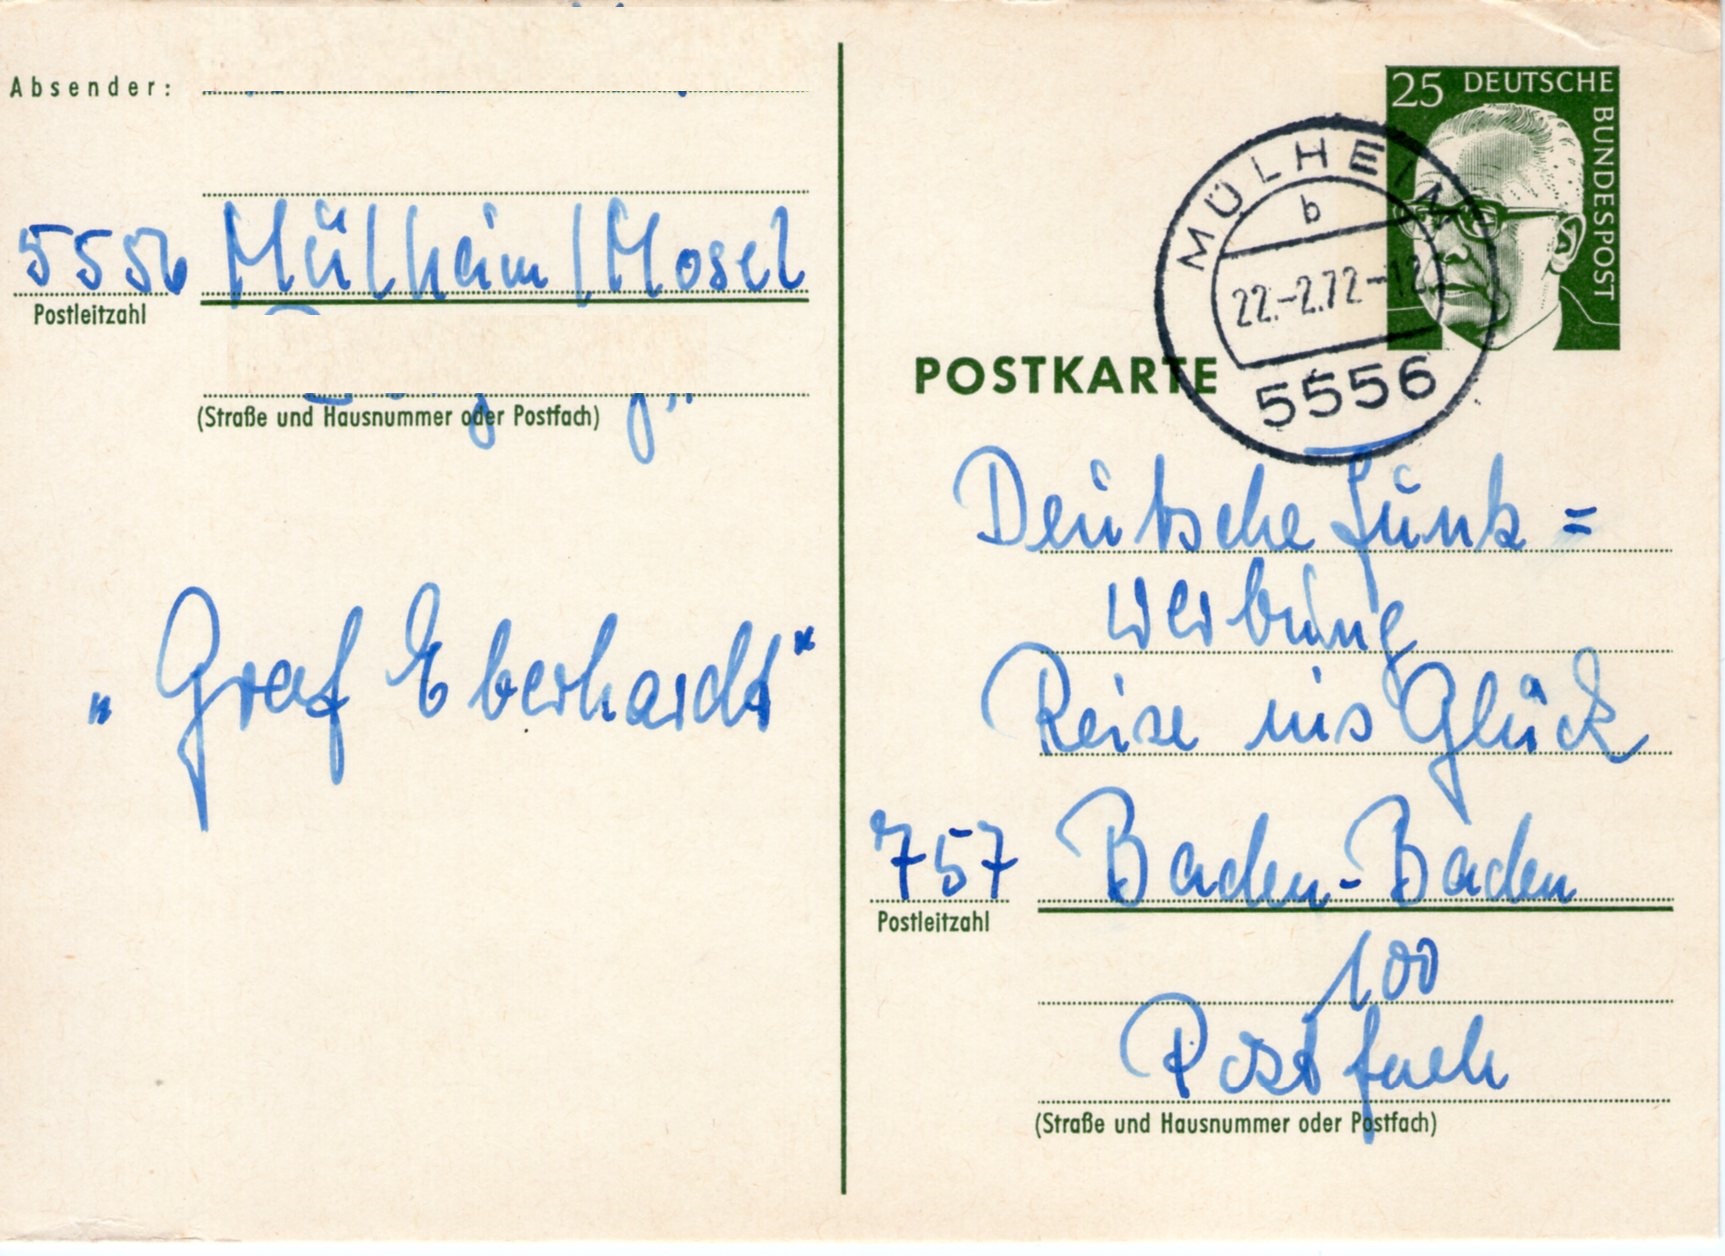 Absender:
5556 Mülheim/Mosel
Postleitzahl
(Straße und Hausnummer oder Postfach)
„Graf Eberhardt"
25 DEUTSCHE
BUNDESPOST
MÜLHEIM
b
22.-2.72-12
5556
POSTKARTE
Deutsche Funk=
werbung
Reise ins Glück
757 Baden-Baden
Postleitzahl
100
Postfach
(Straße und Hausnummer oder Postfach)